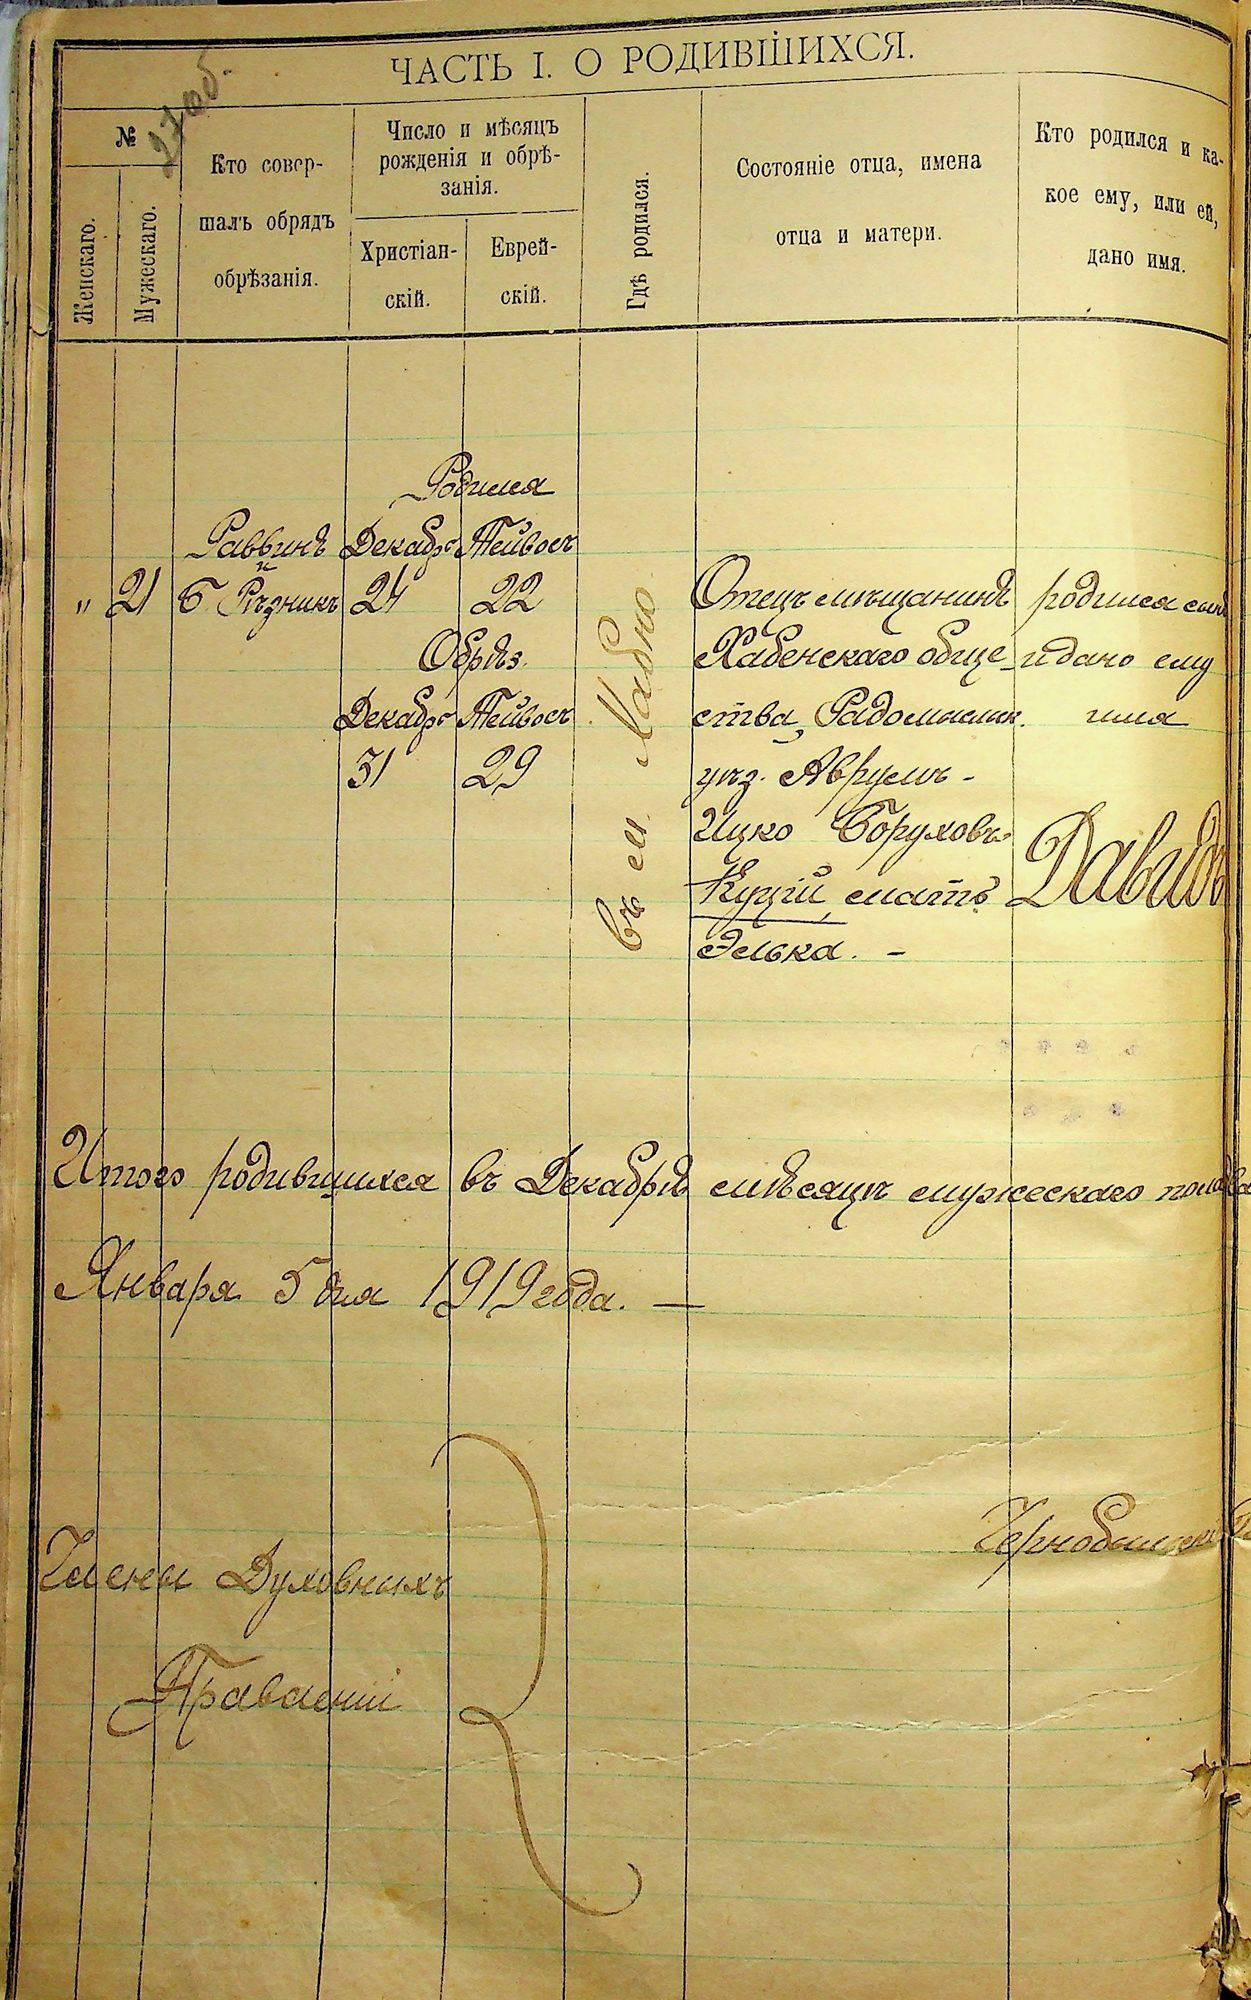 27об.
ЧАСТЬ I. О РОДИВШИХСЯ.
№
Женскаго.
Мужескаго.
Кто совер-
шалъ обрядъ
обрѣзанія.
Число и мѣсяцъ
рожденія и обрѣ-
занія.
Христіан-
скій.
Еврей-
скій.
Гдѣ родился.
Состояніе отца, имена
отца и матери.
Кто родился и ка-
кое ему, или ей,
дано имя.
Родился
Раввинъ Декабрь Тейвосъ
и
" 21 Б Рѣзникъ 24 22
Обрѣз.
Декабрь Тейвосъ
31 29
въ м.
Отецъ мѣщанинъ
Хабенскаго обще-
ства, Радомысльск.
уѣз. Аврумъ-
Ицко Боруховъ
Куцій, мать
Элька. -
родился сынъ
и дано ему
имя
Давидъ
Итого родившихся въ Декабрѣ мѣсяцѣ мужескаго пола
Января 5 дня 1919 года. —
Члены Духовныхъ
Правленій